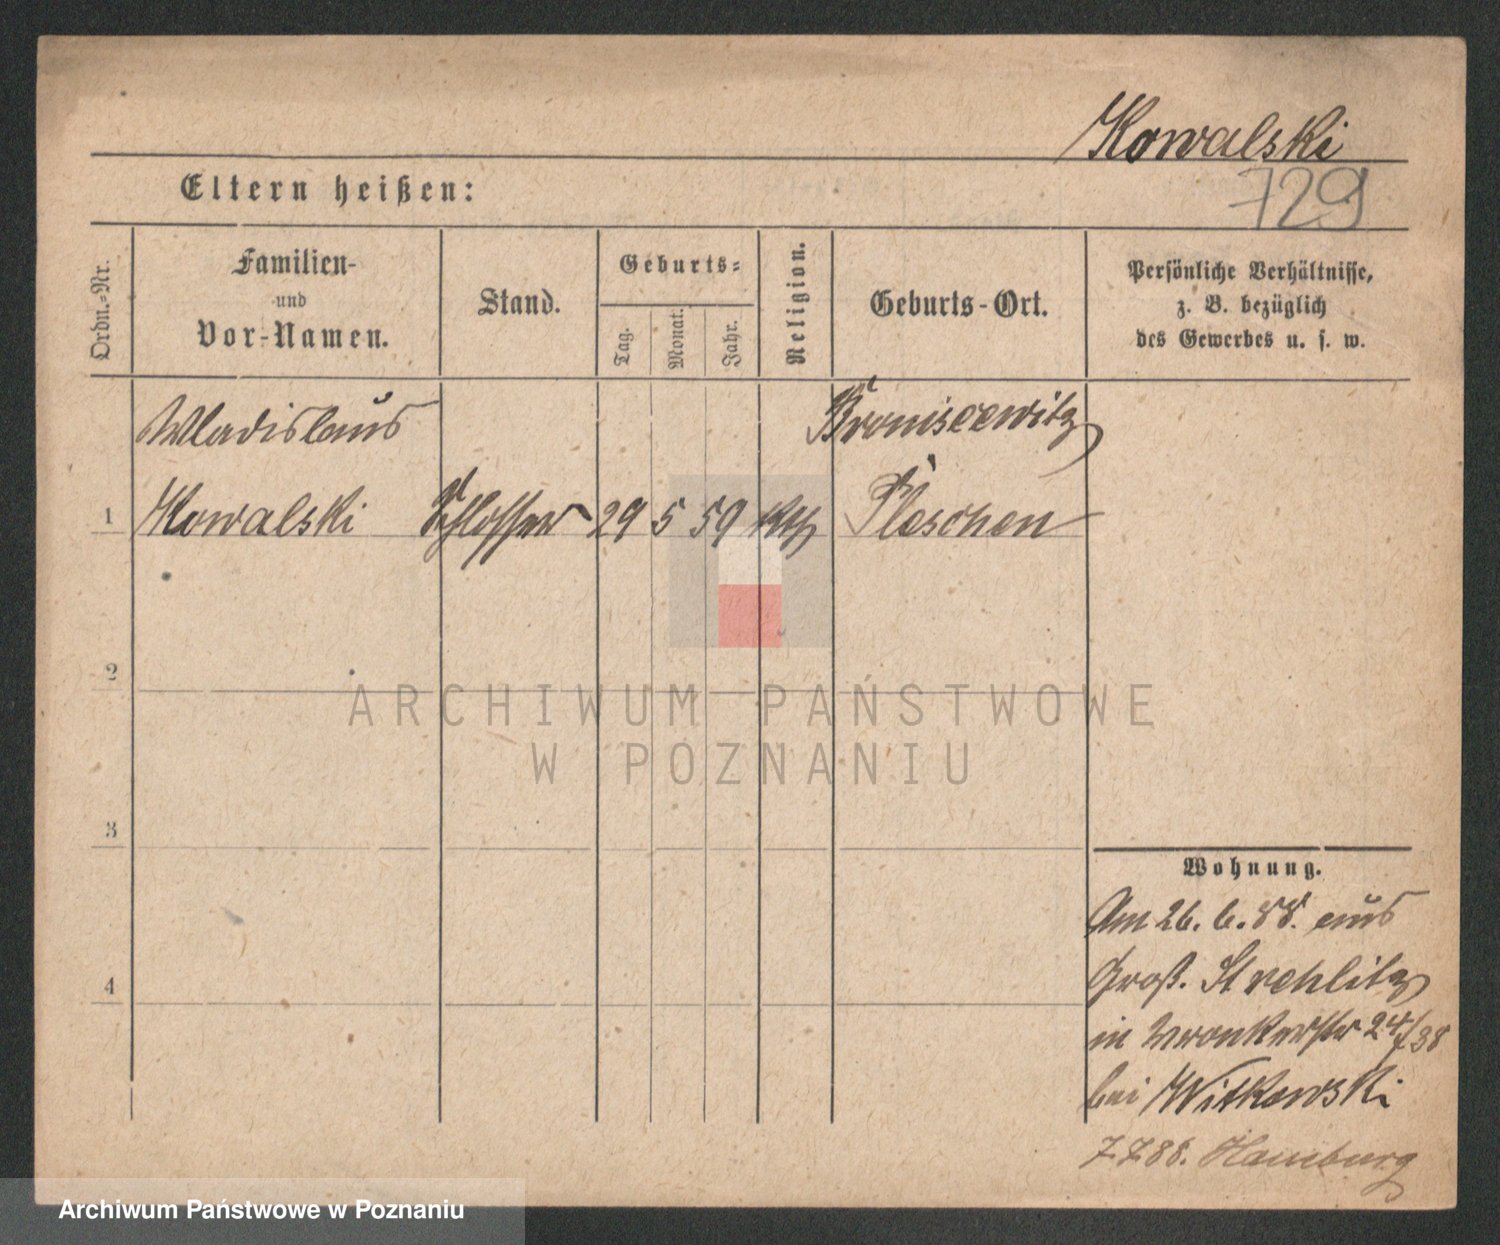 Kowalski
729
Eltern heißen:
Ordn.=Nr.
Familien-
und
Vor-Namen.
Stand.
Geburts=
Tag.
Monat.
Jahr.
Religion.
Geburts-Ort.
Persönliche Verhältnisse,
z. B. bezüglich
des Gewerbes u. s. w.
Wladislaus
1 Kowalski Schlosser 29 5 59 kth Pleschen
2
3
4
Wohnung.
Am 26. 6. 88. aus
Groß. Strehlitz
in Wronkerstr 24/38
bei Witkowski
7.7.88. Hamburg
ARCHIWUM PAŃSTWOWE
W POZNANIU
Archiwum Państwowe w Poznaniu